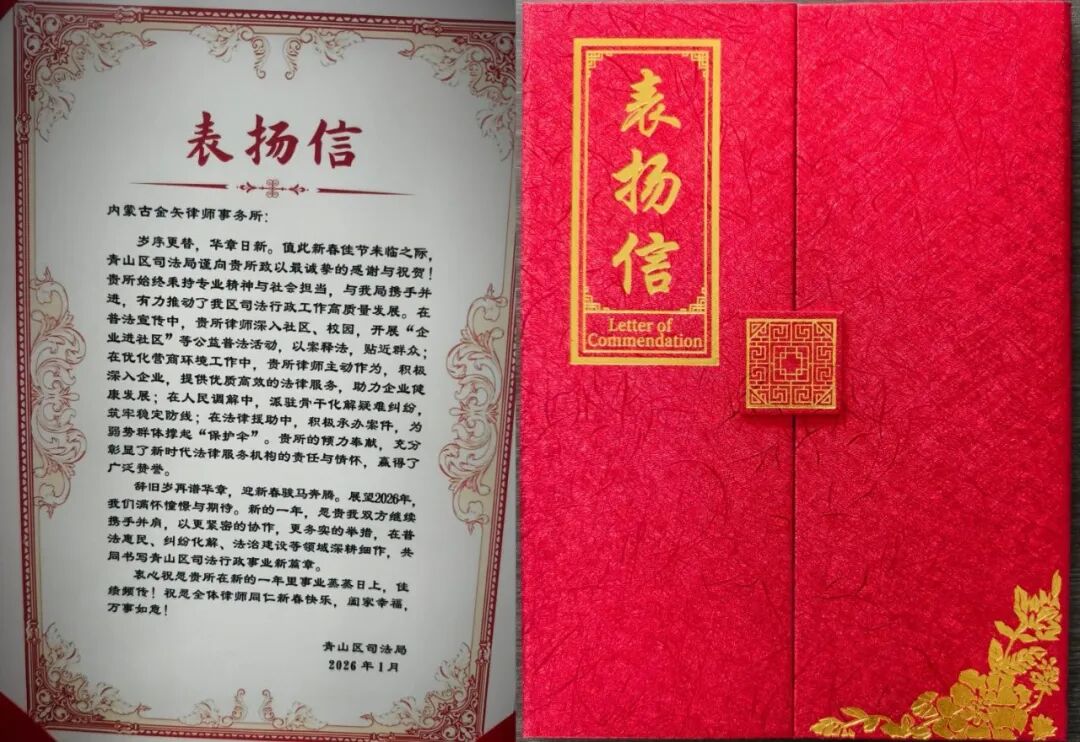 表扬信
内蒙古金矢律师事务所：
岁序更替，华章日新。值此新春佳节来临之际，
青山区司法局谨向贵所致以最诚挚的感谢与祝贺！
贵所始终秉持专业精神与社会担当，与我局携手并
进，有力推动了我区司法行政工作高质量发展。在
普法宣传中，贵所律师深入社区、校园，开展“企
业进社区”等公益普法活动，以案释法，贴近群众；
在优化营商环境工作中，贵所律师主动作为，积极
深入企业，提供优质高效的法律服务，助力企业健
康发展；在人民调解中，派驻骨干化解疑难纠纷，
筑牢稳定防线；在法律援助中，积极承办案件，为
弱势群体撑起“保护伞”。贵所的倾力奉献，充分
彰显了新时代法律服务机构的责任与情怀，赢得了
广泛赞誉。
辞旧岁再谱华章，迎新春骏马奔腾。展望2026年，
我们满怀憧憬与期待。新的一年，愿贵我双方继续
携手并肩，以更紧密的协作，更务实的举措，在普
法惠民、纠纷化解、法治建设等领域深耕细作，共
同书写青山区司法行政事业新篇章。
衷心祝愿贵所在新的一年里事业蒸蒸日上，佳
绩频传！祝愿全体律师同仁新春快乐，阖家幸福，
万事如意！
青山区司法局
2026年1月
表扬信
Letter of
Commendation